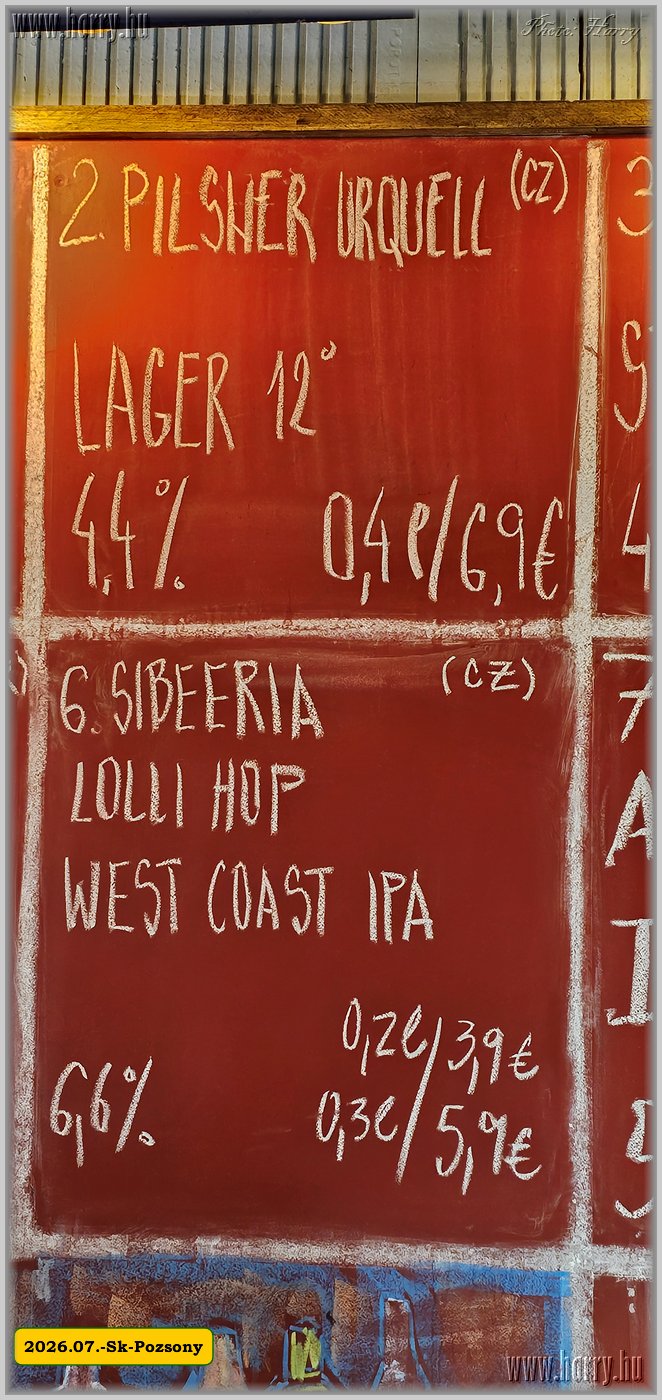 www.horry.hu
Photo: Harry
2. PILSNER URQUELL (CZ)
LAGER 12°
4,4% 0,4l/6,9€
6. SIBEERIA (CZ)
LOLLI HOP
WEST COAST IPA
0,2l/3,9€
6,6% 0,3l/5,9€
2026.07.-Sk-Pozsony
www.horry.hu